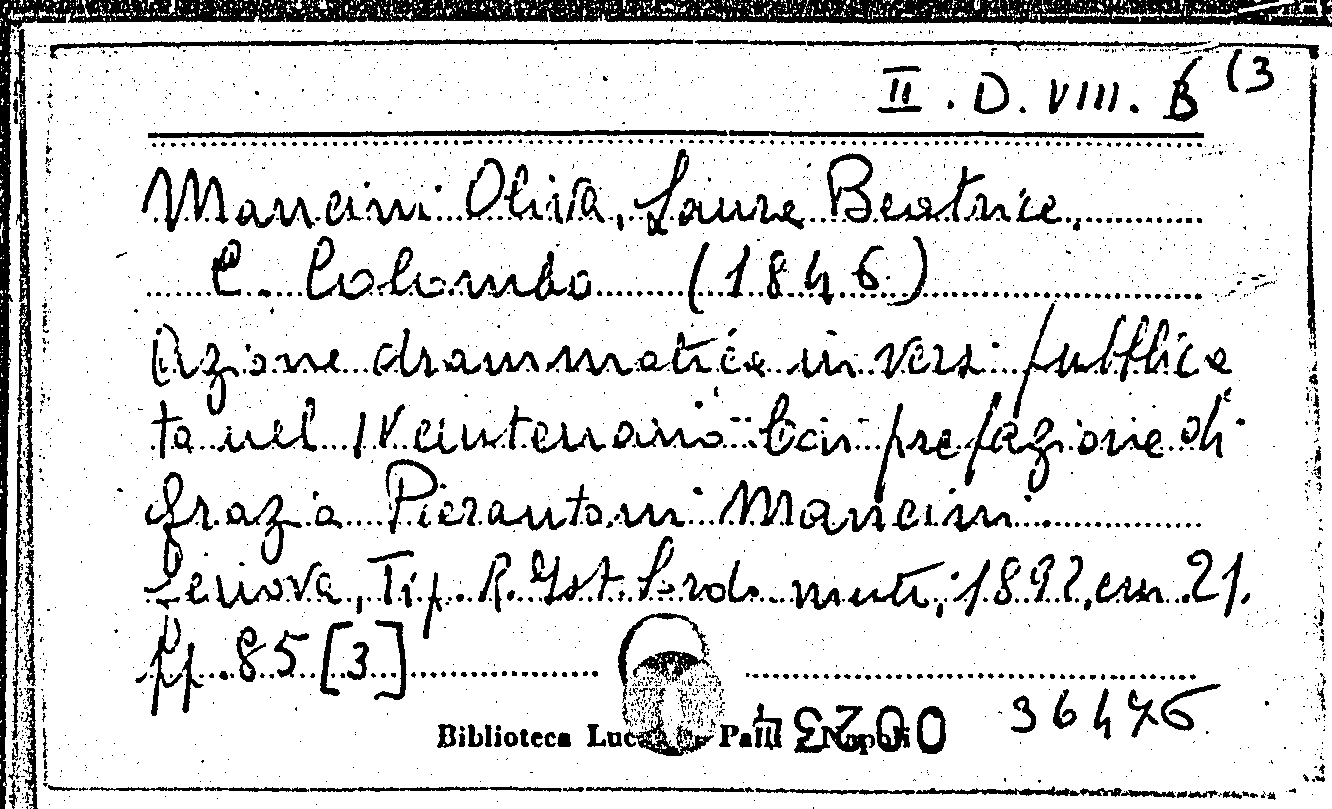 II. D. VIII. 6 (3
Mancini Oliva, Laura Beatrice.
C. Colombo (1846)
Azione drammatica in versi pubblica
ta nel IV centenario Con prefazione di
Grazia Pierantoni Mancini
Genova, Tip. R. Ist. Sord. muti, 1892, cm. 21.
pp. 85 [3]
36476
Biblioteca Napoli